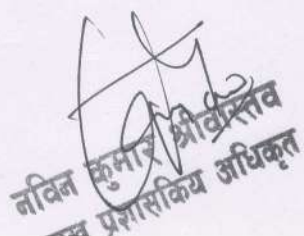 नविन कुमार श्रीवास्तव
प्रशासकिय अधिकृत